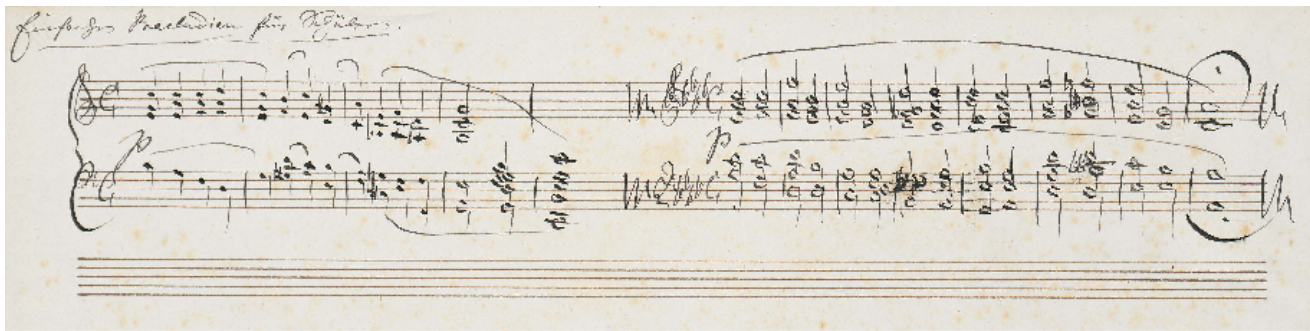 Einfaches Praeludien für Schüler.
p
p